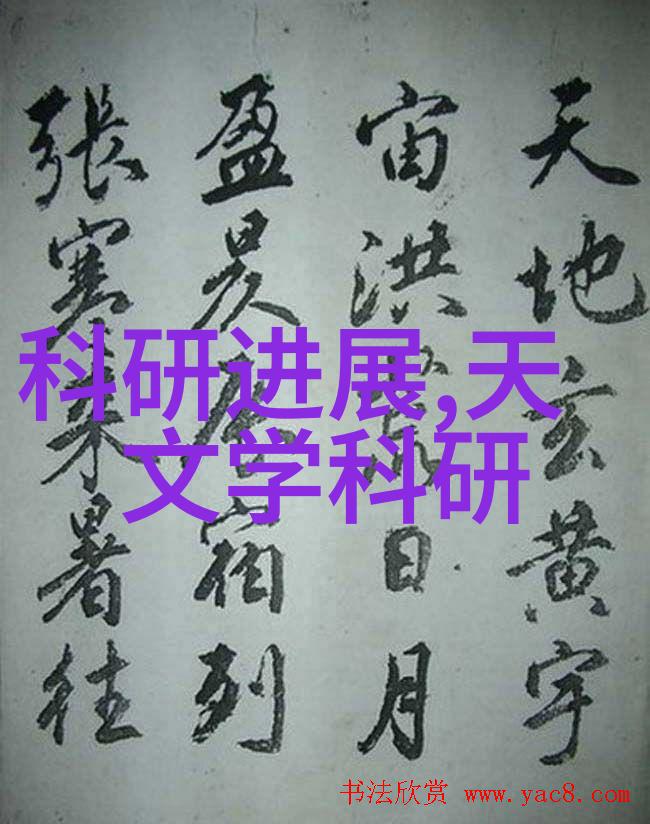 天地玄黄宇
宙洪荒日月
盈昃辰宿列
張寒来暑往
科研进展,天
文学科研
书法欣赏 www.yac8.com